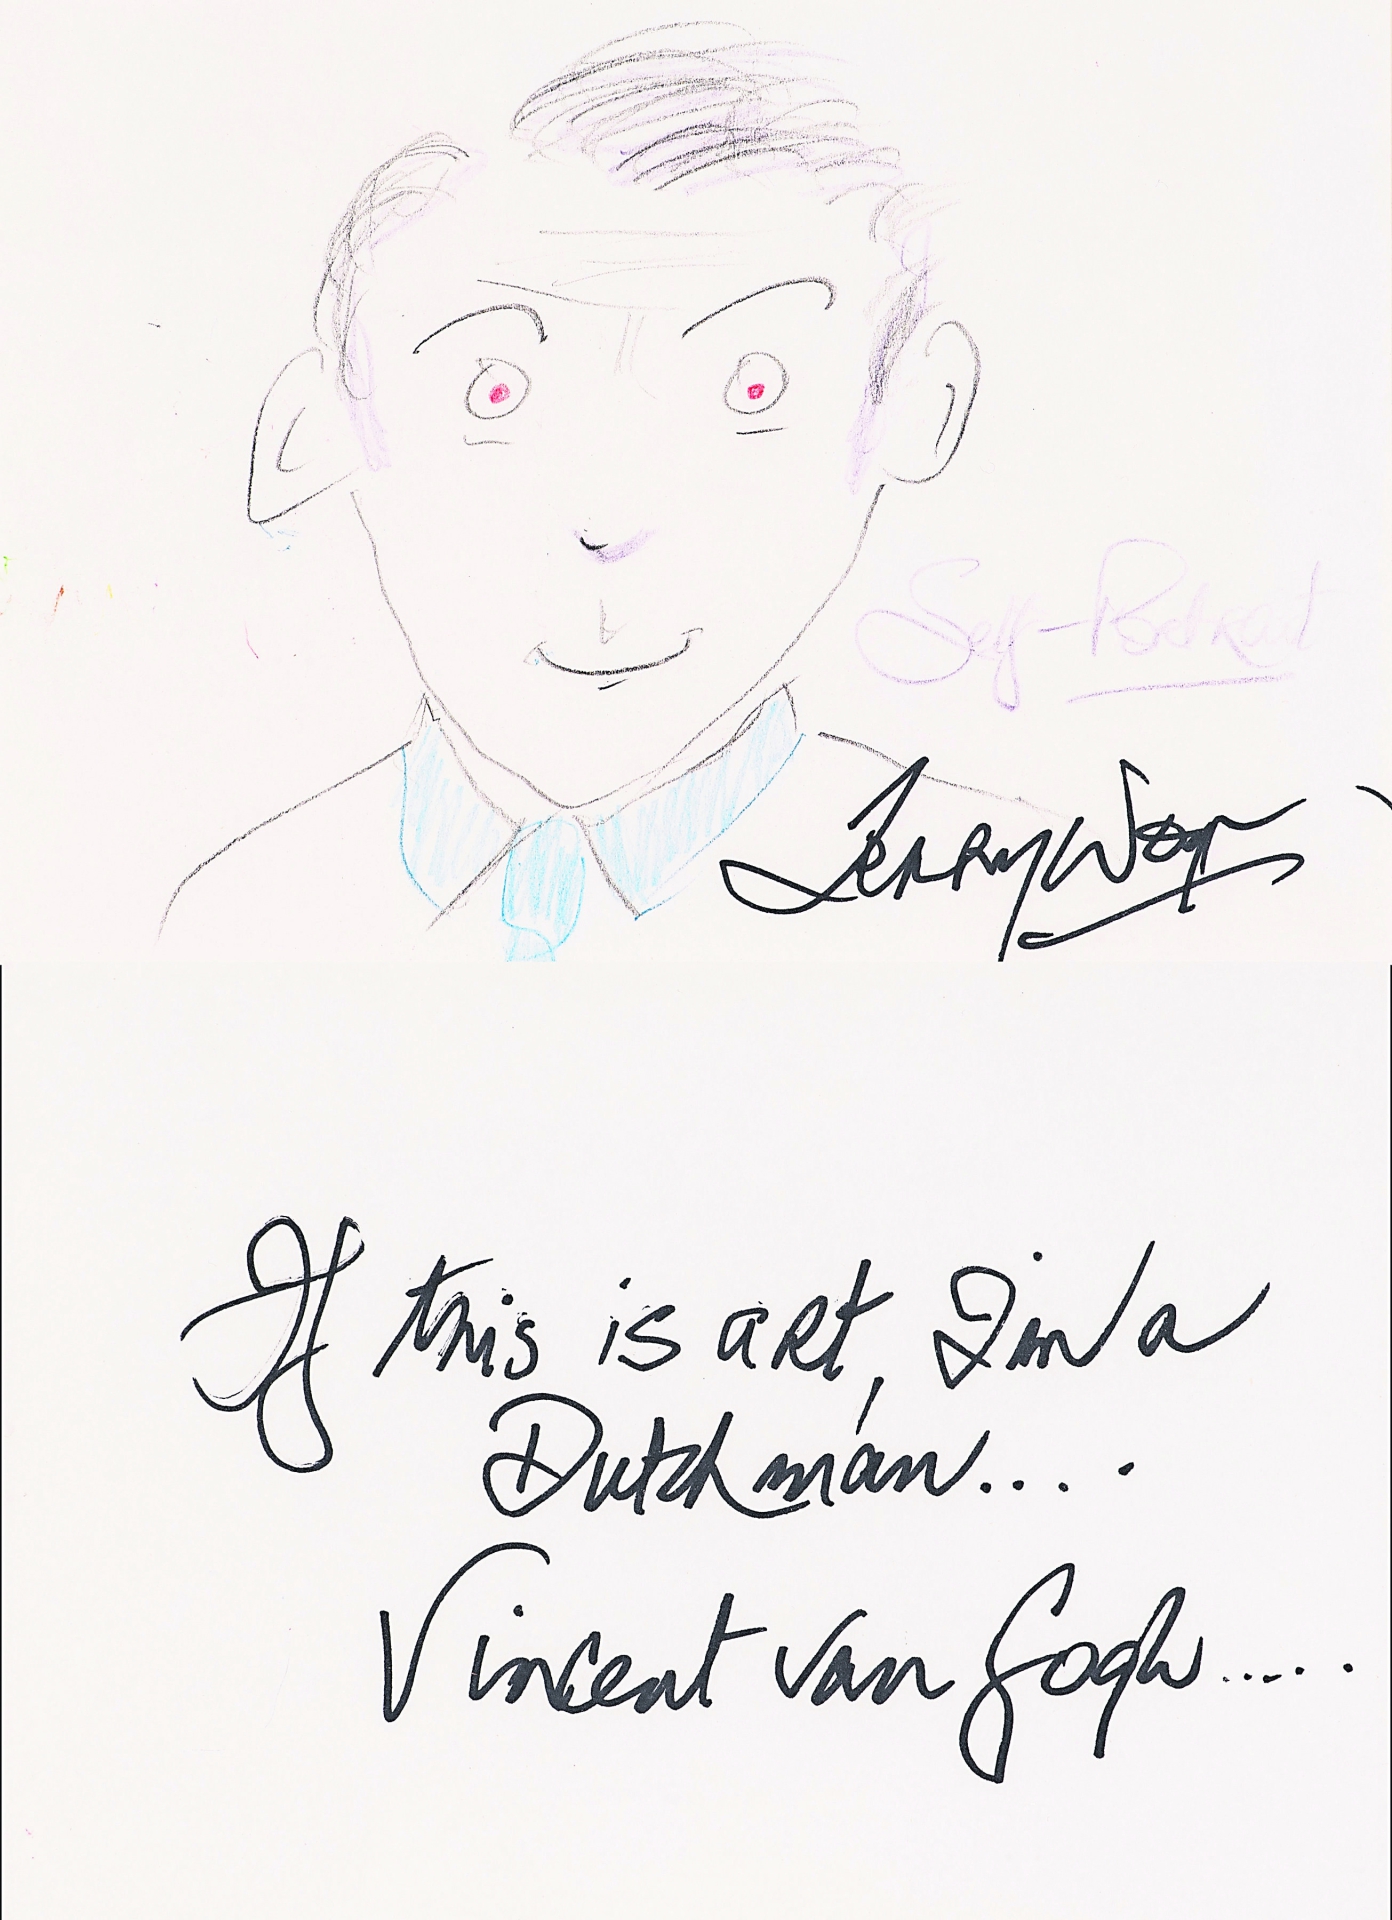 Self-Portrait
Terry Wogan
If this is art, I'm a
Dutchman....
Vincent van Gogh.....